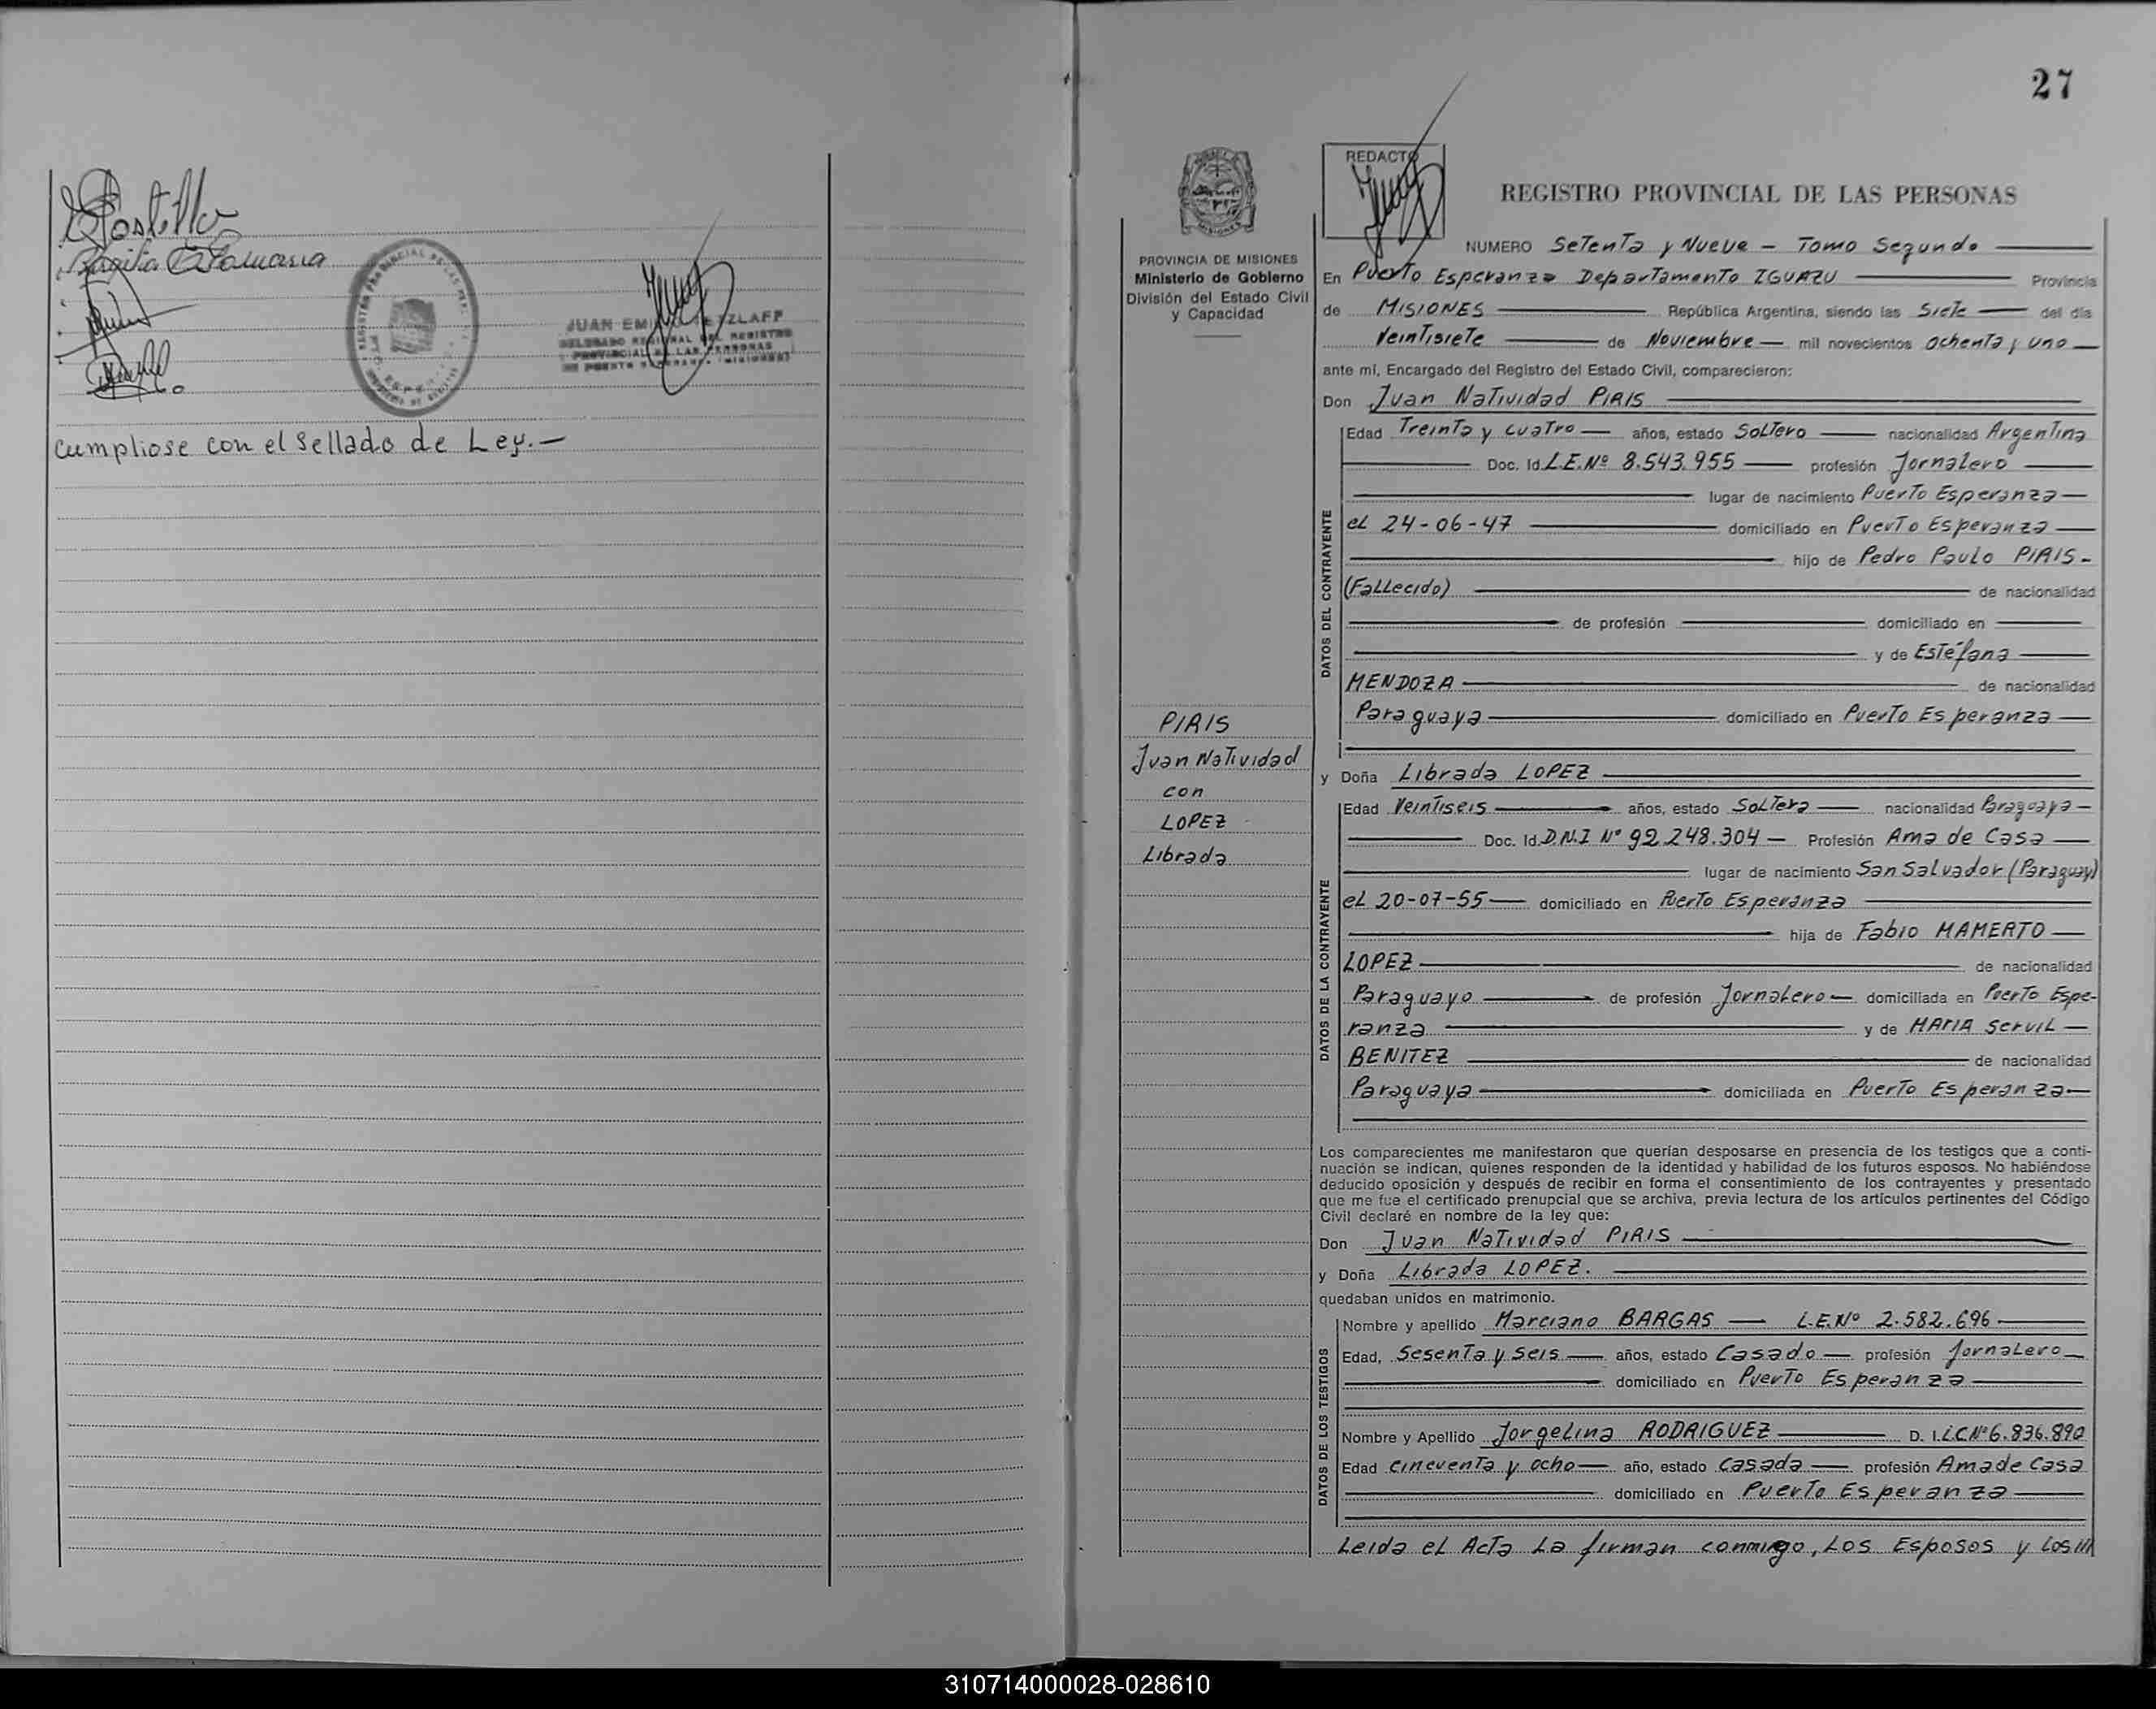 Cumpliose con el Sellado de Ley.—
27
REDACTO
REGISTRO PROVINCIAL DE LAS PERSONAS
PROVINCIA DE MISIONES
Ministerio de Gobierno
División del Estado Civil
y Capacidad
NUMERO Setenta y Nueve - Tomo Segundo
En Puerto Esperanza Departamento IGUAZU Provincia
de MISIONES República Argentina, siendo las Siete del día
Veintisiete de Noviembre mil novecientos ochenta y uno
ante mí, Encargado del Registro del Estado Civil, comparecieron:
Don Juan Natividad PIRIS
DATOS DEL CONTRAYENTE
Edad Treinta y cuatro años, estado Soltero nacionalidad Argentina
Doc. Id. L.E.Nº 8.543.955 profesión Jornalero
lugar de nacimiento Puerto Esperanza
el 24-06-47 domiciliado en Puerto Esperanza
hijo de Pedro Paulo PIRIS-
(Fallecido) de nacionalidad
de profesión domiciliado en
y de Estéfana
MENDOZA de nacionalidad
Paraguaya domiciliado en Puerto Esperanza
PIRIS
Juan Natividad
con
LOPEZ
Librada
y Doña Librada LOPEZ
DATOS DE LA CONTRAYENTE
Edad Veintiseis años, estado Soltera nacionalidad Paraguaya
Doc. Id. D.N.I Nº 92.248.304 Profesión Ama de Casa
lugar de nacimiento San Salvador (Paraguay)
el 20-07-55 domiciliado en Puerto Esperanza
hija de Fabio MAMERTO
LOPEZ de nacionalidad
Paraguayo de profesión Jornalero domiciliada en Puerto Espe-
ranza y de MARIA Servil
BENITEZ de nacionalidad
Paraguaya domiciliada en Puerto Esperanza
Los comparecientes me manifestaron que querían desposarse en presencia de los testigos que a conti-
nuación se indican, quienes responden de la identidad y habilidad de los futuros esposos. No habiéndose
deducido oposición y después de recibir en forma el consentimiento de los contrayentes y presentado
que me fue el certificado prenupcial que se archiva, previa lectura de los artículos pertinentes del Código
Civil declaré en nombre de la ley que:
Don Juan Natividad PIRIS
y Doña Librada LOPEZ.
quedaban unidos en matrimonio.
DATOS DE LOS TESTIGOS
Nombre y apellido Marciano BARGAS — L.E.Nº 2.582.696
Edad, Sesenta y Seis años, estado Casado profesión Jornalero
domiciliado en Puerto Esperanza
Nombre y Apellido Jorgelina RODRIGUEZ D. I. LC Nº 6.836.890
Edad cincuenta y ocho año, estado Casada profesión Ama de Casa
domiciliado en Puerto Esperanza
Leida el Acta La firman conmigo, Los Esposos y Los ///
310714000028-028610